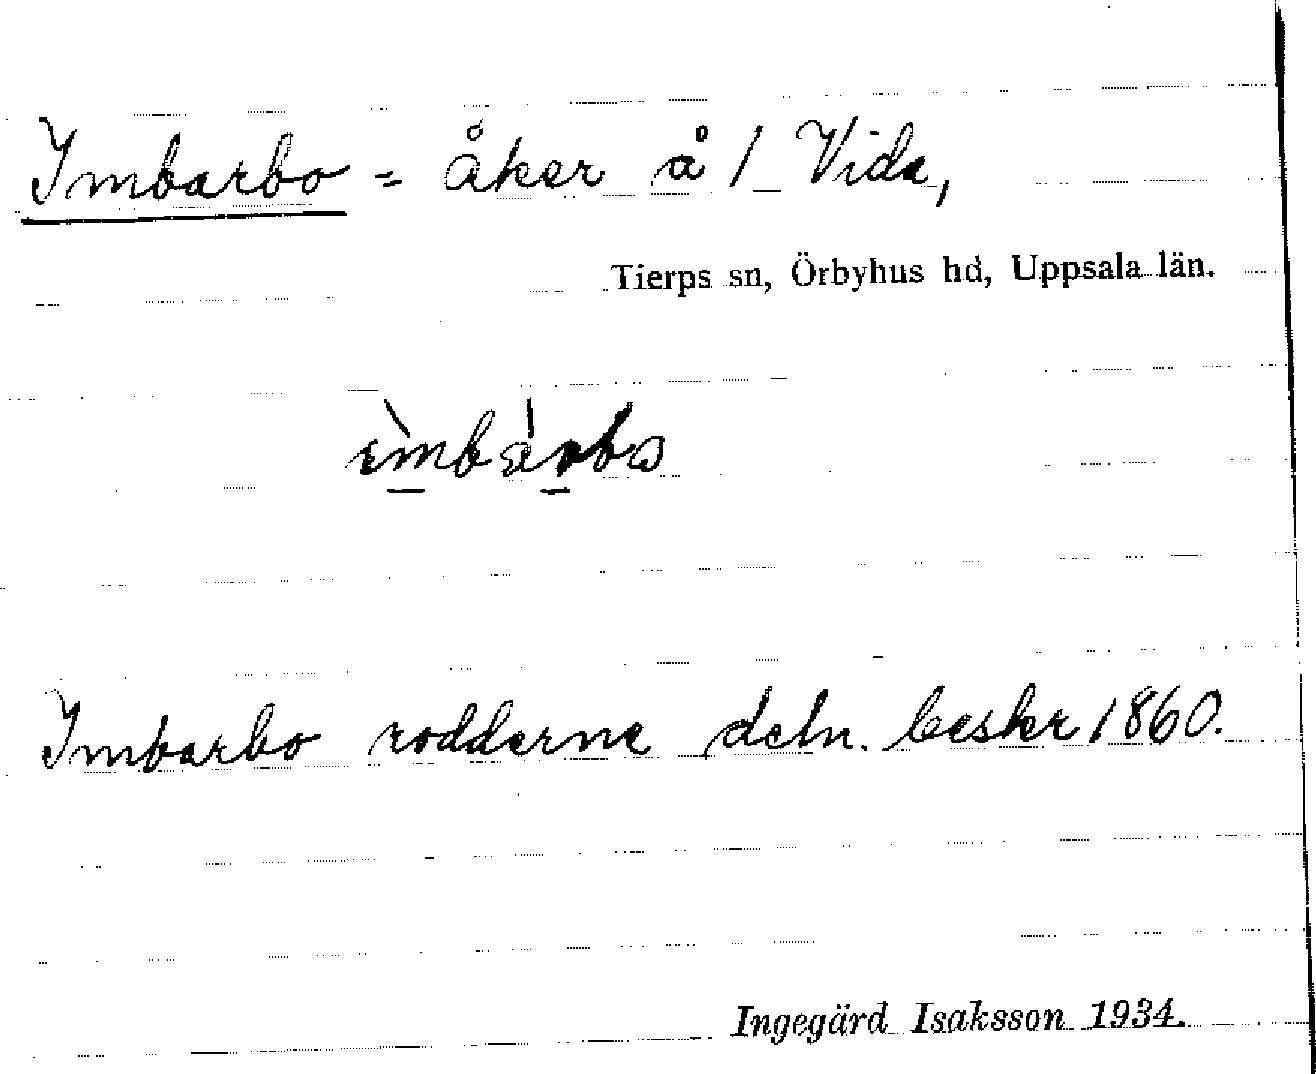 Imbarbo = åker å 1 Vida,
Tierps sn, Örbyhus hd, Uppsala län.
Imbarbo rodderne deln. beskr 1860.
Ingegärd Isaksson 1934.